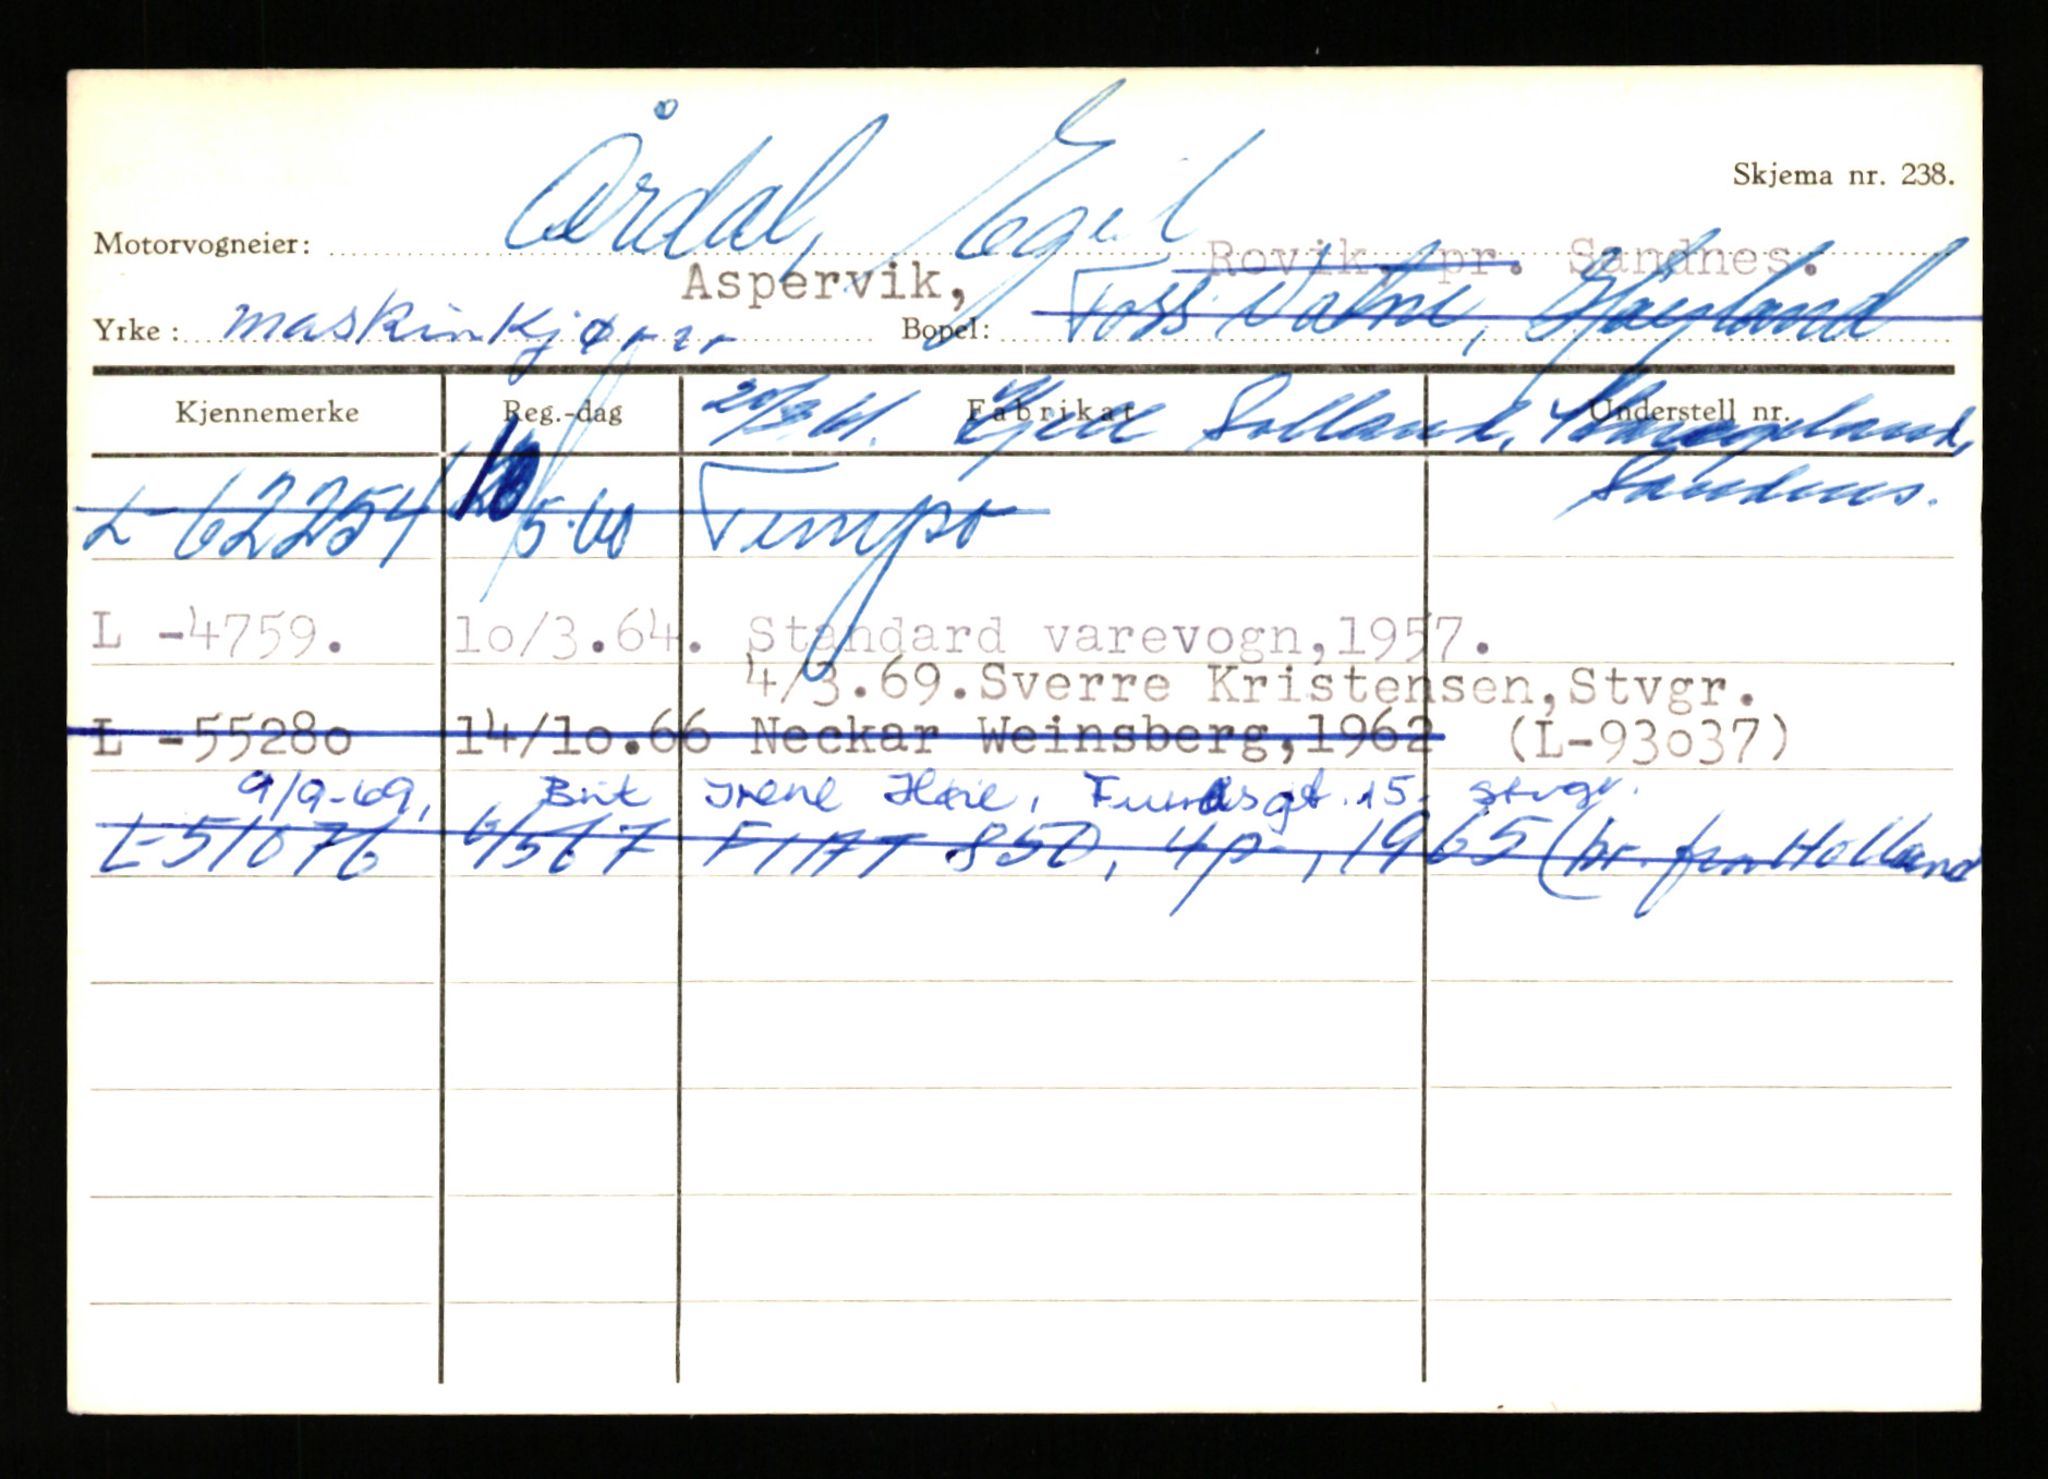 Skjema nr. 238.
Motorvogneier: Årdal, Egil
Rovik, pr. Sandnes.
Aspervik,
Yrke: maskinkjører Bopel: Foss Vatne, Høyland
Kjennemerke Reg.-dag Fabrikat Understell nr.
Kjell Solland,
Sandnes.
L-62254 10/5.60 Tempo
L -4759. 1o/3.64. Standard varevogn,1957.
4/3.69.Sverre Kristensen,Stvgr.
L -5528o 14/1o.66 Neckar Weinsberg,1962 (L-93o37)
9/9-69, Brit Irene Høie, 15, Stvgr.
L-51076 6/5 67 FIAT 850, 4p-, 1965 (br. fra Holland